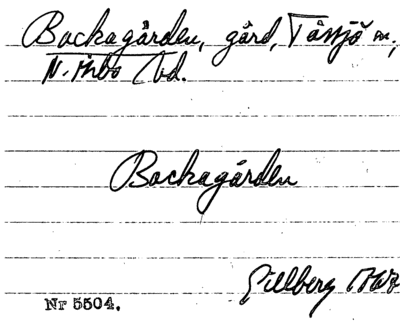 Backagården, gård, Tåssjö sn,
N. Åsbo hd.
Backagården
Gillberg
Nr 5504.